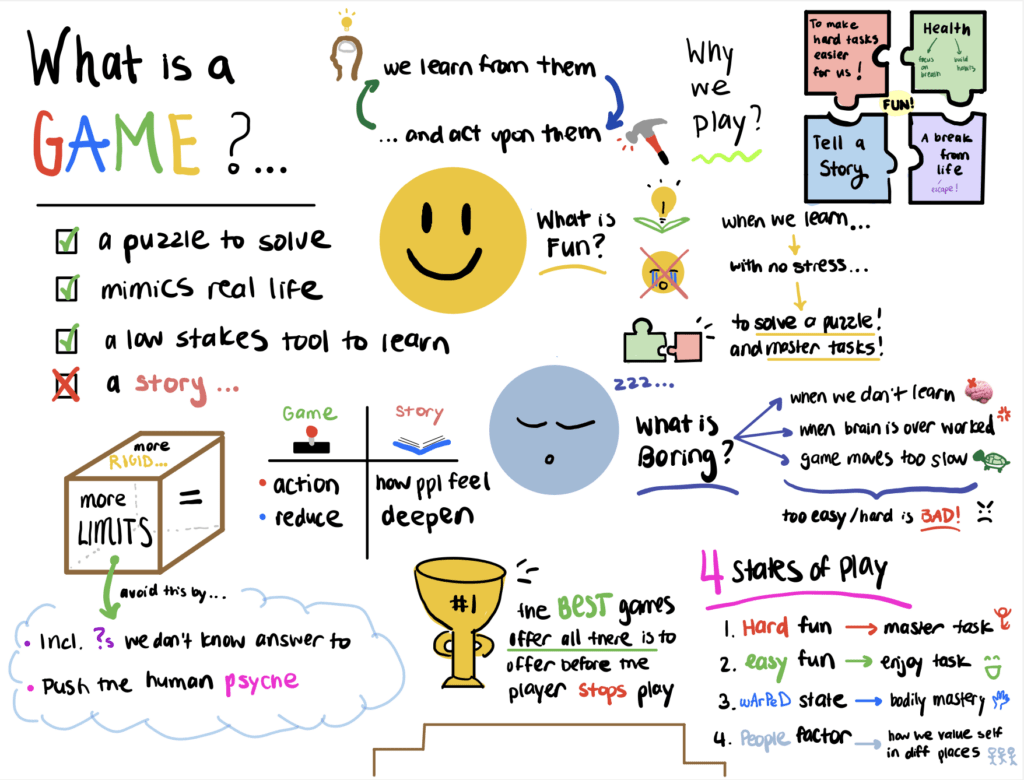 What is a
GAME?...
a puzzle to solve
mimics real life
a low stakes tool to learn
a story...
we learn from them
... and act upon them
Why
we
play?
To make
hard tasks
easier
for us!
Health
focus
on
breath
build
habits
FUN!
Tell a
Story
A break
from
life
escape!
What is
Fun?
when we learn...
with no stress...
to solve a puzzle!
and master tasks!
zzz...
What is
Boring?
when we don't learn
when brain is over worked
game moves too slow
too easy/hard is BAD!
Game
Story
• action
how ppl feel
• reduce
deepen
more
RIGID...
more
LIMITS
=
avoid this by...
• Incl. ?s we don't know answer to
• Push the human psyche
#1
the BEST games
offer all there is to
offer before the
player stops play
4 States of Play
1. Hard fun → master task
2. easy fun → enjoy task
3. wArPeD state → bodily mastery
4. People factor → how we value self
in diff places